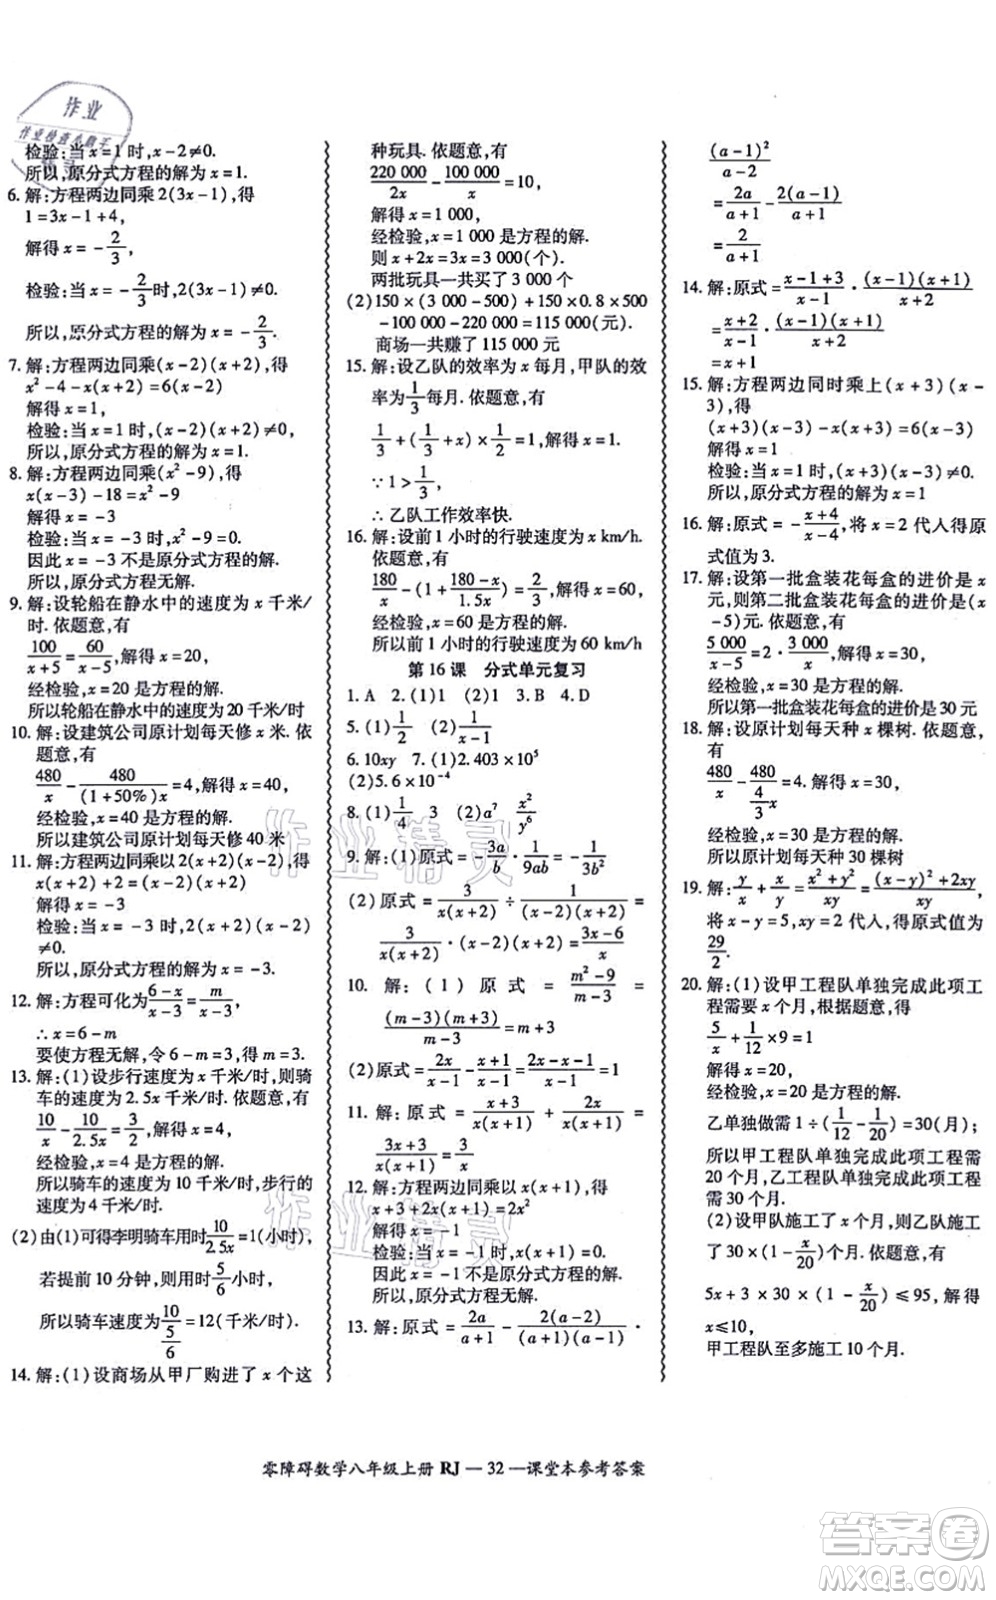 作业
作业检查小助手
精灵
检验:当x=1时,x-2≠0.
所以,原分式方程的解为x=1.
6. 解:方程两边同乘2(3x-1),得
1=3x-1+4,
解得x=-2/3,
检验:当x=-2/3时,2(3x-1)≠0.
所以,原分式方程的解为x=-2/3.
7. 解:方程两边同乘(x-2)(x+2),得
x²-4-x(x+2)=6(x-2)
解得x=1,
检验:当x=1时,(x-2)(x+2)≠0,
所以,原分式方程的解为x=1.
8. 解:方程两边同乘(x²-9),得
x(x-3)-18=x²-9
解得x=-3
检验:当x=-3时,x²-9=0.
因此x=-3不是原分式方程的解.
所以,原分式方程无解.
9. 解:设轮船在静水中的速度为x千米/
时. 依题意,有
100/(x+5)=60/(x-5),解得x=20,
经检验,x=20是方程的解.
所以轮船在静水中的速度为20千米/时
10. 解:设建筑公司原计划每天修x米. 依
题意,有
480/x-480/((1+50%)x)=4,解得x=40,
经检验,x=40是方程的解.
所以建筑公司原计划每天修40米
11. 解:方程两边同乘以2(x+2)(x-2),得
x(x+2)=(x+2)(x-2)
解得x=-3
检验:当x=-3时,2(x+2)(x-2)
≠0.
所以,原分式方程的解为x=-3.
12. 解:方程可化为(6-x)/(x-3)=m/(x-3),
∴x=6-m
要使方程无解,令6-m=3,得m=3.
13. 解:(1)设步行速度为x千米/时,则骑
车的速度为2.5x千米/时. 依题意,有
10/x-10/2.5x=3/2,解得x=4,
经检验,x=4是方程的解.
所以骑车的速度为10千米/时,步行的
速度为4千米/时.
(2)由(1)可得李明骑车用时10/2.5x=1(小时),
若提前10分钟,即用时5/6小时,
所以骑车速度为10/(5/6)=12(千米/时)
14. 解:(1)设商场从甲厂购进了x个这
种玩具. 依题意,有
220 000/2x-100 000/x=10,
解得x=1 000,
经检验,x=1 000是方程的解.
则x+2x=3x=3 000(个).
两批玩具一共买了3 000个
(2)150×(3 000-500)+150×0.8×500
-100 000-220 000=115 000(元).
商场一共赚了115 000元
15. 解:设乙队的效率为x每月,甲队的效
率为1/3每月. 依题意,有
1/3+(1/3+x)×1/2=1,解得x=1,
∵1>1/3,
∴乙队工作效率快.
16. 解:设前1小时的行驶速度为x km/h.
依题意,有
180/x-(1+(180-x)/1.5x)=2/3,解得x=60,
经检验,x=60是方程的解.
所以前1小时的行驶速度为60 km/h
第16课 分式单元复习
1. A 2. (1)1 (2)1 3. B 4. D
5. (1)1/2 (2)1/(x-1)
6. 10xy 7. (1)2.403×10⁵
(2)5.6×10⁻⁴
8. (1)1/4 3 (2)a⁷ x²/y⁶
9. 解:(1)原式=-3a/b·1/9ab=-1/3b²
(2)原式=3/(x(x+2))÷1/((x-2)(x+2))=
3/(x(x+2))·(x-2)(x+2)=(3x-6)/x
10. 解:(1)原式=(m²-9)/(m-3)=
((m-3)(m+3))/(m-3)=m+3
(2)原式=2x/(x-1)-(x+1)/(x-1)=(2x-x-1)/(x-1)=1
11. 解:原式=(x+3)/(x+1)+2x/(x+1)=
(3x+3)/(x+1)=(3(x+1))/(x+1)=3
12. 解:方程两边同乘x(x+1),得
x+3+2x(x+1)=2x²
解得x=-1
检验:当x=-1时,x(x+1)=0.
因此x=-1不是原分式方程的解.
所以,原分式方程无解.
13. 解:原式=2a/(a+1)-2(a-2)/((a+1)(a-1))·
(a-1)²/(a-2)
=2a/(a+1)-2(a-1)/(a+1)
=2/(a+1)
14. 解:原式=(x-1+3)/(x-1)·((x-1)(x+1))/(x+2)
=(x+2)/(x-1)·((x-1)(x+1))/(x+2)
=x+1
15. 解:方程两边同时乘上(x+3)(x-
3),得
(x+3)(x-3)-x(x+3)=6(x-3)
解得x=1
检验:当x=1时,(x+3)(x-3)≠0.
所以,原分式方程的解为x=1
16. 解:原式=-(x+4)/(x-4),将x=2代人得原
式值为3.
17. 解:设第一批盒装花每盒的进价是x
元,则第二批盒装花每盒的进价是(x
-5)元. 依题意,有
5 000/(x-5)=2·3 000/x,解得x=30,
经检验,x=30是方程的解.
所以第一批盒装花每盒的进价是30元
18. 解:设原计划每天种x棵树. 依题意,
有
480/x-480/(4/3 x)=4,解得x=30,
经检验,x=30是方程的解.
所以原计划每天种30棵树
19. 解:y/x+x/y=(x²+y²)/xy=((x-y)²+2xy)/xy,
将x-y=5,xy=2代人,得原式值为
29/2.
20. 解:(1)设甲工程队单独完成此项工
程需要x个月,根据题意,得
5/x+1/12×9=1
解得x=20,
经检验,x=20是方程的解,
乙单独做需1÷(1/12-1/20)=30(月)
所以甲工程队单独完成此项工程需
20个月,乙工程队单独完成此项工程
需30个月.
(2)设甲队施工了x个月,则乙队施工
了30×(1-x/20)个月. 依题意,有
5x+3×30×(1-x/20)≤95,解得
x≤10,
甲工程队至多施工10个月.
作业精灵
作业精灵
零障碍数学八年级上册 RJ — 32 —课堂本参考答案
答案圈
MXQE.COM